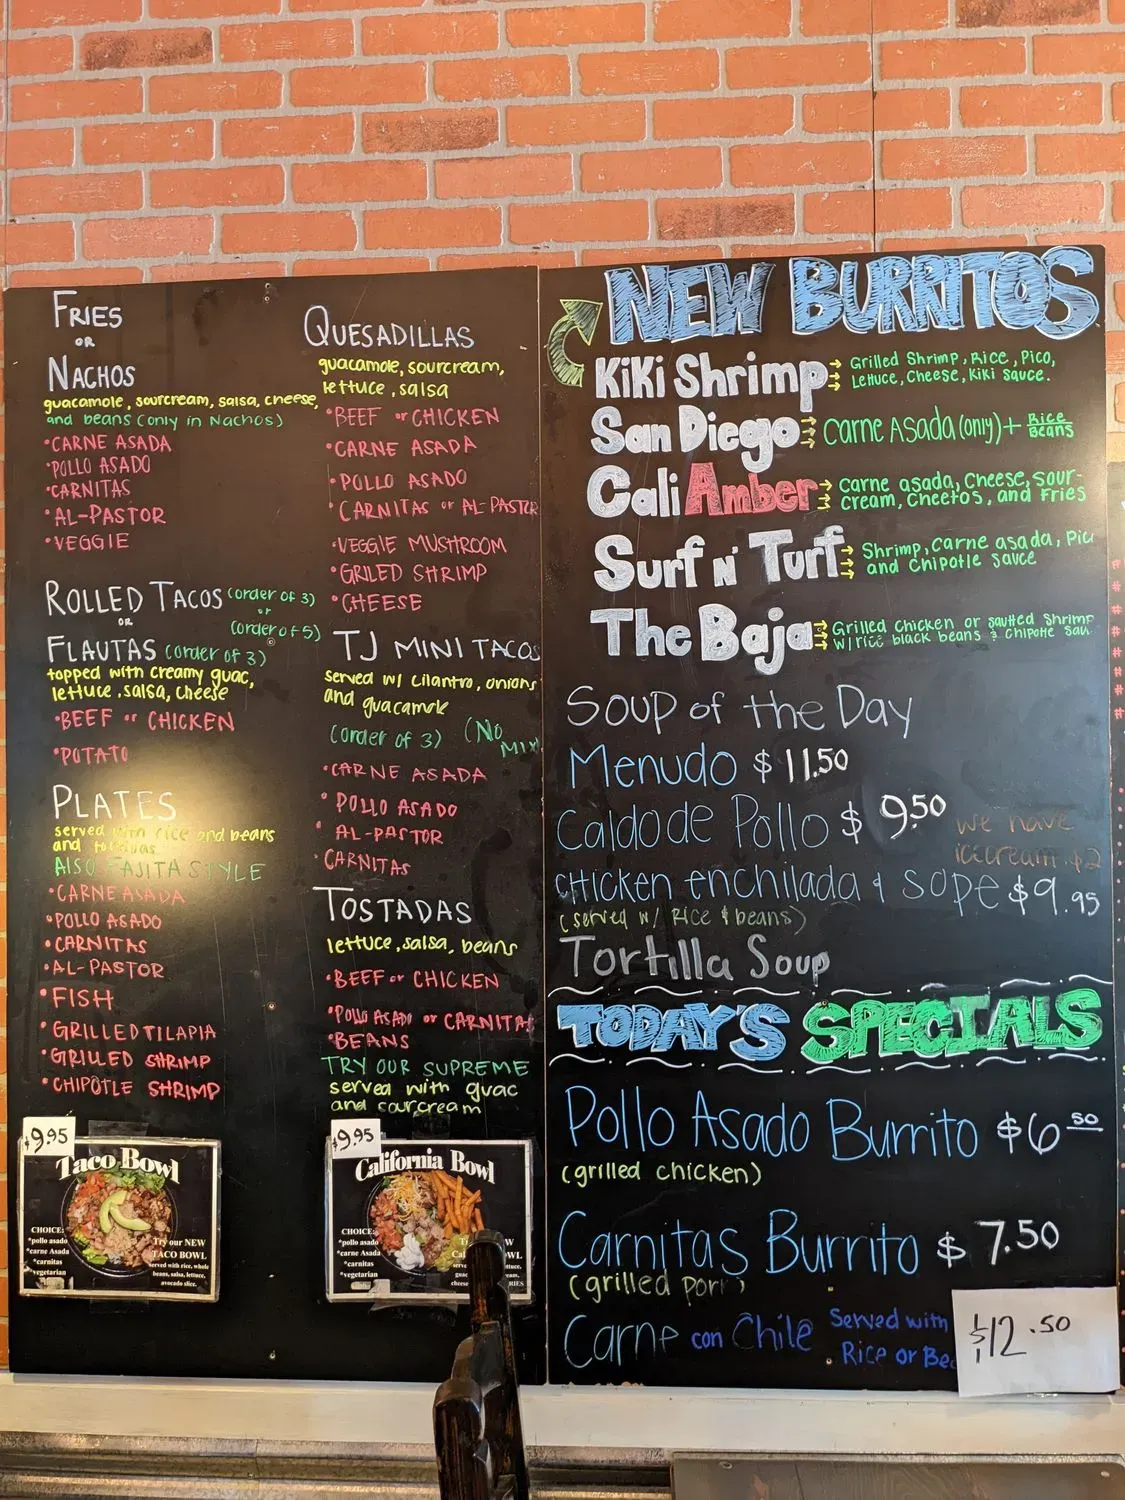 FRIES
OR
NACHOS
guacamole, sourcream, salsa, cheese,
and beans (only in Nachos)
•CARNE ASADA
•POLLO ASADO
•CARNITAS
•AL-PASTOR
•VEGGIE
ROLLED TACOS (order of 3)
or
(order of 5)
OR
FLAUTAS (order of 3)
topped with creamy guac,
lettuce, salsa, cheese
•BEEF or CHICKEN
•POTATO
PLATES
served with rice and beans
and
ALSO FAJITA STYLE
•CARNE ASADA
•POLLO ASADO
•CARNITAS
•AL-PASTOR
•FISH
•GRILLED TILAPIA
•GRILLED SHRIMP
•CHIPOTLE SHRIMP
$9.95
Taco Bowl
CHOICE:
*pollo asado
*carne Asada
*carnitas
*vegetarian
Try our NEW
TACO BOWL
served with rice, whole
beans, salsa, lettuce,
avocado slice.
QUESADILLAS
guacamole, sourcream,
lettuce, salsa
•BEEF or CHICKEN
•CARNE ASADA
•POLLO ASADO
•CARNITAS or AL-PASTOR
•VEGGIE MUSHROOM
•GRILED SHRIMP
•CHEESE
TJ MINI TACOS
served w/ cilantro, onions
and guacamole
(order of 3) (No MIX
•CARNE ASADA
•POLLO ASADO
•AL-PASTOR
•CARNITAS
TOSTADAS
lettuce, salsa, beans
•BEEF or CHICKEN
•POLLO ASADO or CARNITAS
•BEANS
TRY OUR SUPREME
served with guac
and sourcream
$9.95
California Bowl
CHOICE:
*pollo asado
*carne Asada
*carnitas
*vegetarian
NEW BURRITOS
KiKi Shrimp → Grilled Shrimp, Rice, Pico,
Lettuce, Cheese, Kiki sauce.
San Diego → Carne Asada (only) + Rice
Beans
Cali Amber → carne asada, Cheese, sour-
cream, cheetos, and Fries
Surf n' Turf → Shrimp, carne asada, Pico
and Chipotle sauce
The Baja → Grilled chicken or sautted Shrimp
w/ rice black beans & chipotle sau
Soup of the Day
Menudo $11.50
Caldo de Pollo $9.50
we have
icecream $2
Chicken enchilada & sope $9.95
(served w/ Rice & beans)
Tortilla Soup
TODAY'S SPECIALS
Pollo Asado Burrito $6 50
(grilled chicken)
Carnitas Burrito $7.50
(grilled pork)
Carne con Chile Served with
Rice or Be
$12.50